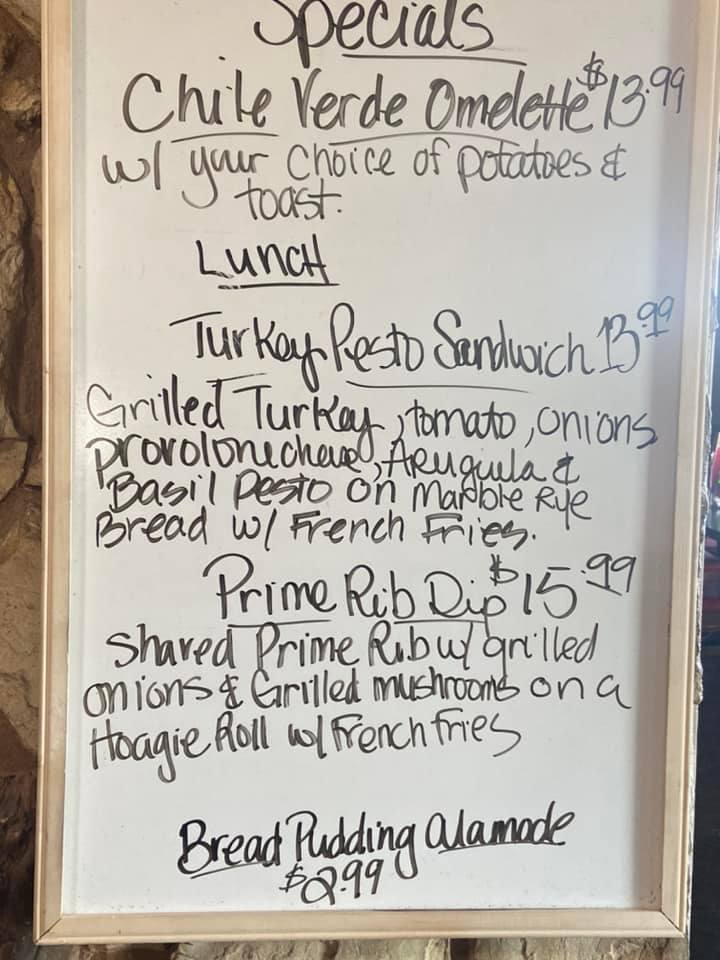 Specials
Chile Verde Omelette $13.99
w/ your choice of potatoes &
toast.
Lunch
Turkey Pesto Sandwich 13.99
Grilled Turkey, tomato, onions
provolone cheese, Arugula &
Basil Pesto on Marble Rye
Bread w/ French Fries.
Prime Rib Dip $15.99
shared Prime Rib w/ grilled
onions & Grilled mushrooms on a
Hoagie Roll w/ French fries
Bread Pudding alamode
$2.99